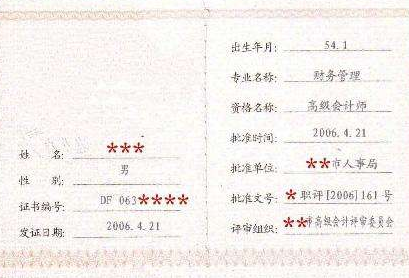 姓 名: ***
性 别: 男
证书编号: DF 063****
发证日期: 2006.4.21
出生年月: 54.1
专业名称: 财务管理
资格名称: 高级会计师
批准时间: 2006.4.21
批准单位: **市人事局
批准文号: *职评[2006]161号
评审组织: **市高级会计评审委员会